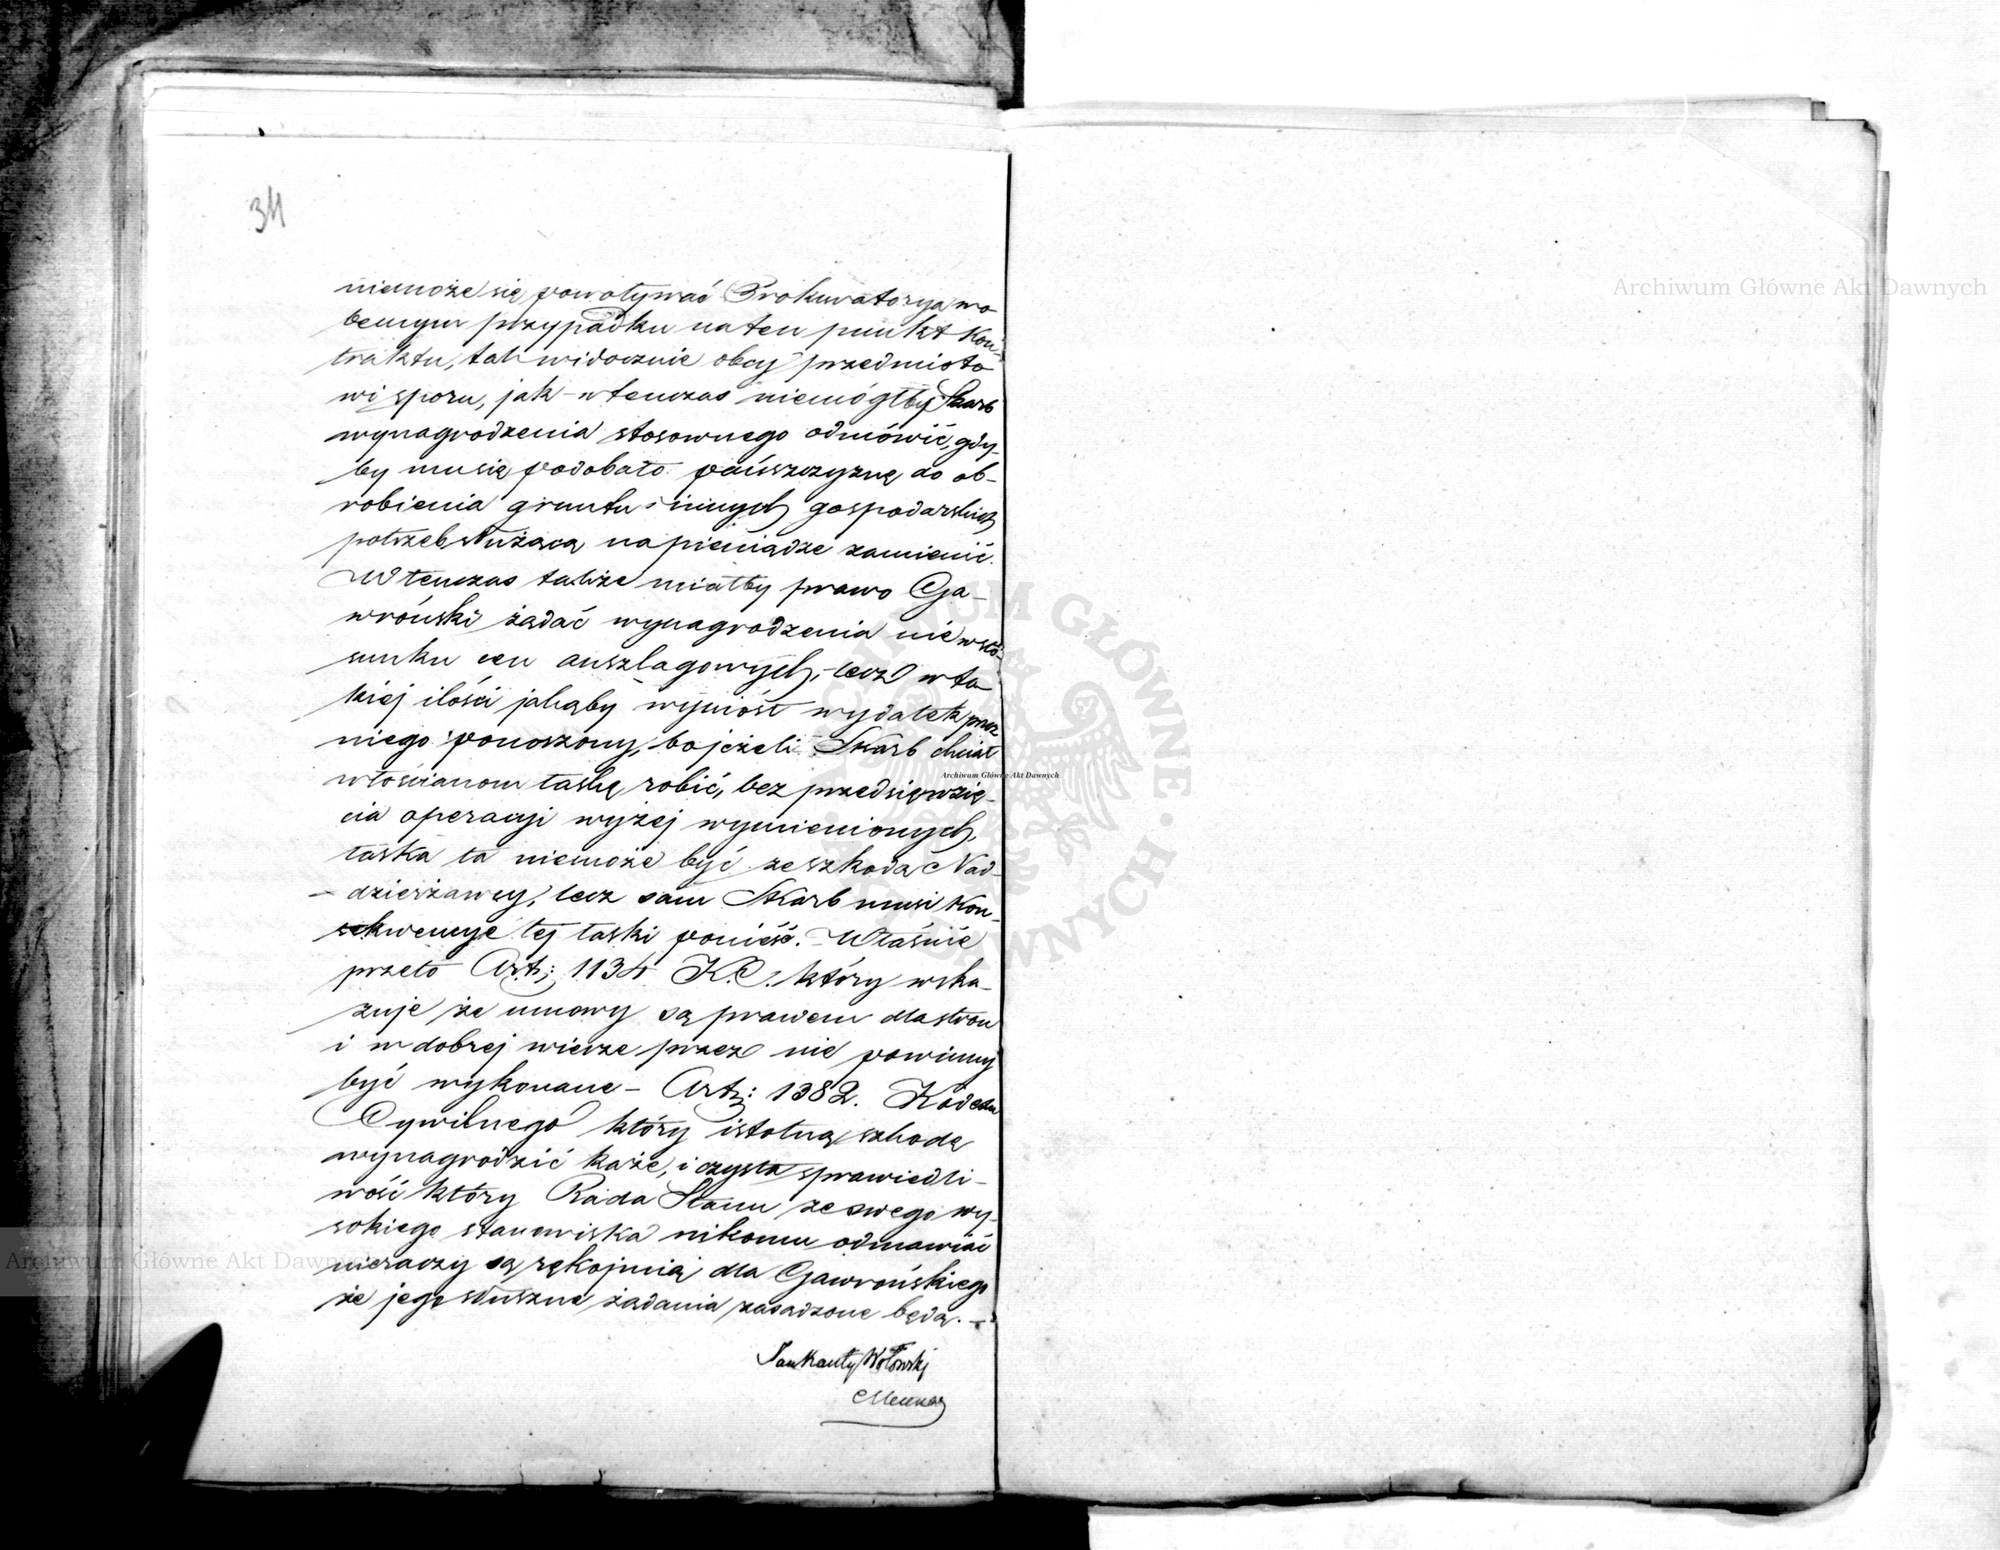 34
niemoże się powoływać Prokuratorya w o
becnym przypadku na ten punkt Kon-
traktu, tak widocznie obcy przedmioto
wi sporu, jak w tenczas niemógłby Skarb
wynagrodzenia stosownego odmówić, gdy-
by mu się podobało pańszczyznę do ob-
robienia gruntu i innych gospodarskich
potrzeb służącą na pieniądze zamienić.
W tenczas także miałby prawo Ga-
wroński żądać wynagrodzenia nie w sto-
sunku cen anszlagowych, lecz w ta
kiej ilości jakąby wyniósł wydatek przez
niego ponoszony, bo jeżeli Skarb chciał
włościanom łaskę robić, bez przedsięwzię-
cia operacji wyżej wymienionych,
łaska ta niemoże być ze szkodą Nad-
dzierżawcy, lecz sam Skarb musi kon-
sekwencye tej łaski ponieść. – Właśnie
przeto Art: 1134 K.C. który wska-
zuje że umowy są prawem dla stron
i w dobrej wierze przez nie powinny
być wykonane – Art: 1382. Kodexu
Cywilnego który istotną szkodę
wynagrodzić każe, i czysta sprawiedli-
wość który Rada Stanu ze swego wy-
sokiego stanowiska nikomu odmawiać
nieraczy są rękojmią dla Gawrońskiego
że jego słuszne żądania zasądzone będą. –
Jan Kanty Wołowski
Mecenas
Archiwum Główne Akt Dawnych
Archiwum Główne Akt Dawnych
Archiwum Główne Akt Dawnych
ARCHIWUM GŁÓWNE AKT DAWNYCH